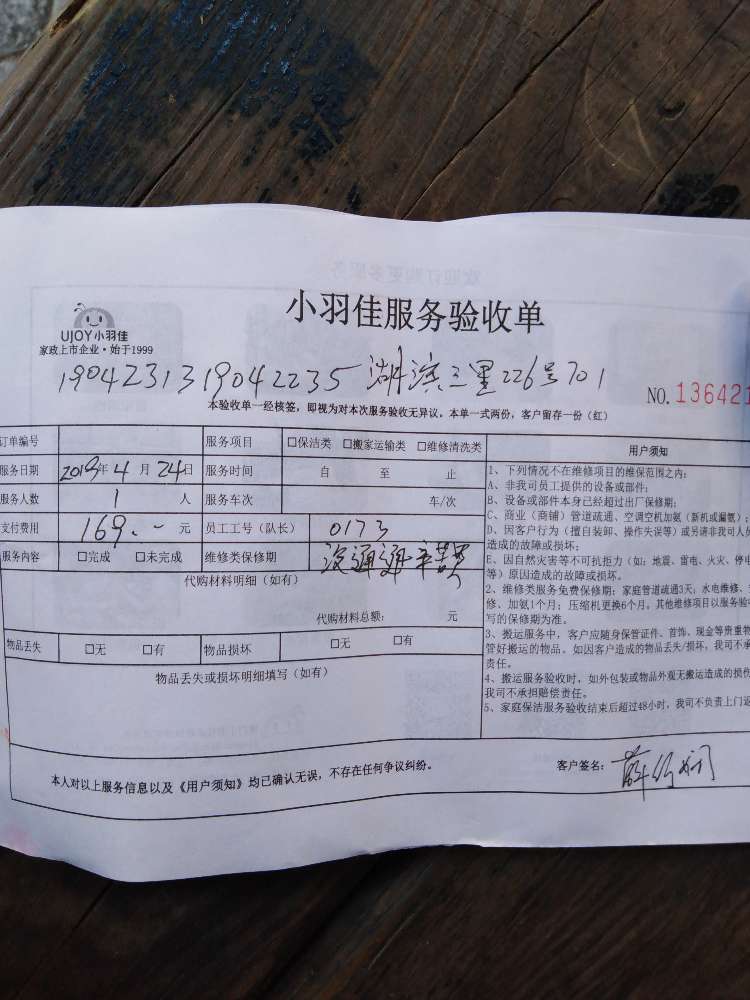 小羽佳服务验收单
UJOY小羽佳
家政上市企业·始于1999
1904231319042235 湖滨三里226号701
NO.136421
本验收单一经核签，即视为对本次服务验收无异议。本单一式两份，客户留存一份（红）
订单编号 服务项目 □保洁类 □搬家运输类 □维修清洗类
服务日期 2019年4月24日 服务时间 自 至 止
服务人数 1 人 服务车次 车/次
支付费用 169.-- 元 员工工号（队长） 0173
服务内容 □完成 □未完成 维修类保修期 没通通辛苦费
代购材料明细（如有）
代购材料总额： 元
物品丢失 □无 □有 物品损坏 □无 □有
物品丢失或损坏明细填写（如有）
用户须知
1、下列情况不在维修项目的维保范围之内：
A、非我司员工提供的设备或部件；
B、设备或部件本身已经超过出厂保修期；
C、商业（商铺）管道疏通、空调空机加氨（新机或漏氨）；
D、因客户行为（擅自装卸、操作失误等）或另请非我司人员
造成的故障或损坏；
E、因自然灾害等不可抗拒力（如：地震、雷电、火灾、停电
等）原因造成的故障或损坏。
2、维修类服务免费保修期：家庭管道疏通3天；水电维修、
修、加氨1个月；压缩机更换6个月。其他维修项目以服务验
写的保修期为准。
3、搬运服务中，客户应随身保管证件、首饰、现金等贵重物
管好搬运的物品。如因客户造成的物品丢失/损坏，我司不承
责任。
4、搬运服务验收时，如外包装或物品外观无搬运造成的损伤
我司不承担赔偿责任。
5、家庭保洁服务验收结束后超过48小时，我司不负责上门返
本人对以上服务信息以及《用户须知》均已确认无误，不存在任何争议纠纷。
客户签名：